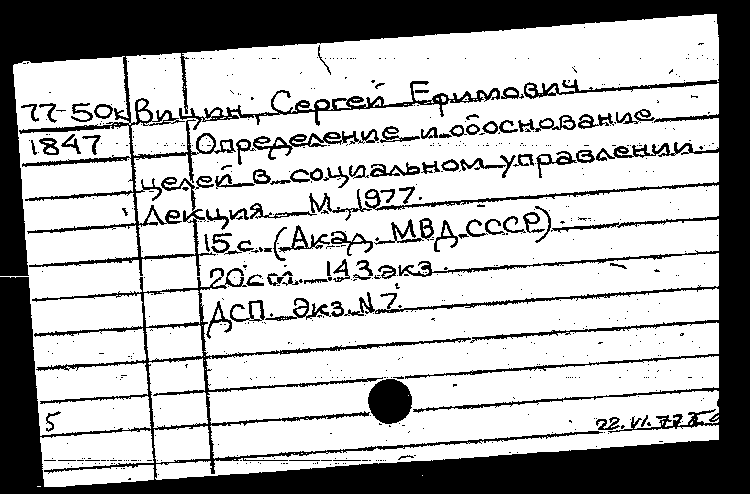 77-50к Вицин, Сергей Ефимович.
1847 Определение и обоснование
целей в социальном управлении.
Лекция. М., 1977.
15 с. (Акад. МВД СССР).
20 см. 143 экз.
ДСП. Экз. N 7.
5
22.VI.77